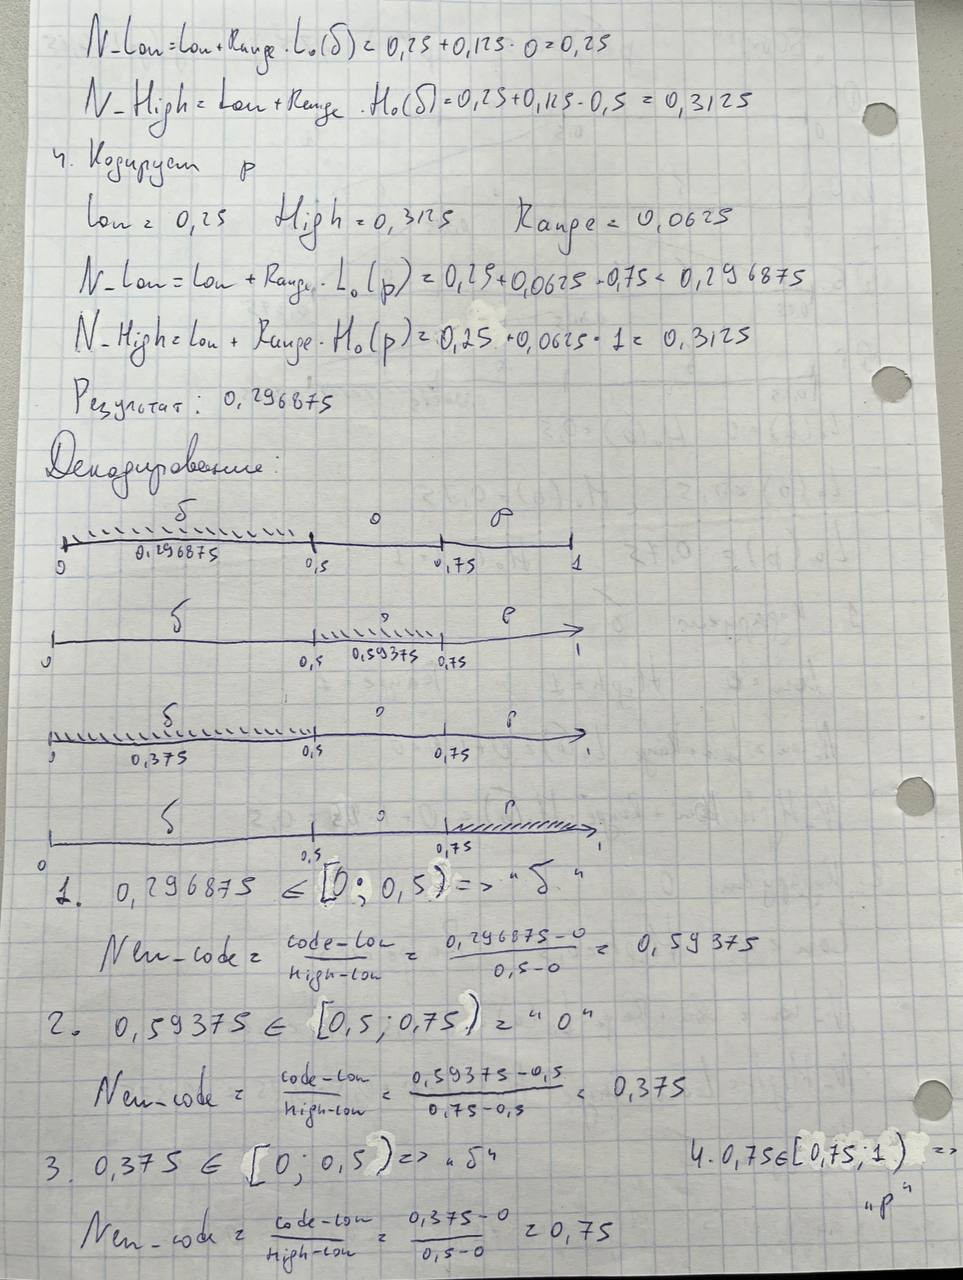 N_Low=Low+Range·L₀(б)= 0,25+0,125·0=0,25
N_High= Low+Range·H₀(б)=0,25+0,125·0,5 = 0,3125
4. Кодируем р
Low= 0,25 High=0,3125 Range= 0,0625
N_Low=Low+Range·L₀(р)=0,25+0,0625·0,75= 0,296875
N_High=Low+Range·H₀(р)=0,25+0,0625·1= 0,3125
Результат: 0,296875
Декодирование:
б о р
0 0,296875 0,5 0,75 1
б о р
0 0,5 0,59375 0,75 1
б о р
0 0,375 0,5 0,75 1
б о р
0 0,5 0,75 1
1. 0,296875 ∈ [0; 0,5) => "б"
New_code = (code-Low)/(High-Low) = (0,296875-0)/(0,5-0) = 0,59375
2. 0,59375 ∈ [0,5; 0,75) = "о"
New_code = (code-Low)/(High-Low) = (0,59375-0,5)/(0,75-0,5) = 0,375
3. 0,375 ∈ [0; 0,5) => "б"
4. 0,75∈[0,75; 1) =>
"р"
New_code = (code-Low)/(High-Low) = (0,375-0)/(0,5-0) = 0,75